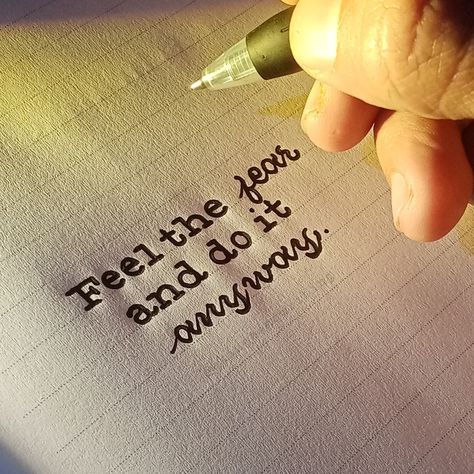 Feel the fear
and do it
anyway.